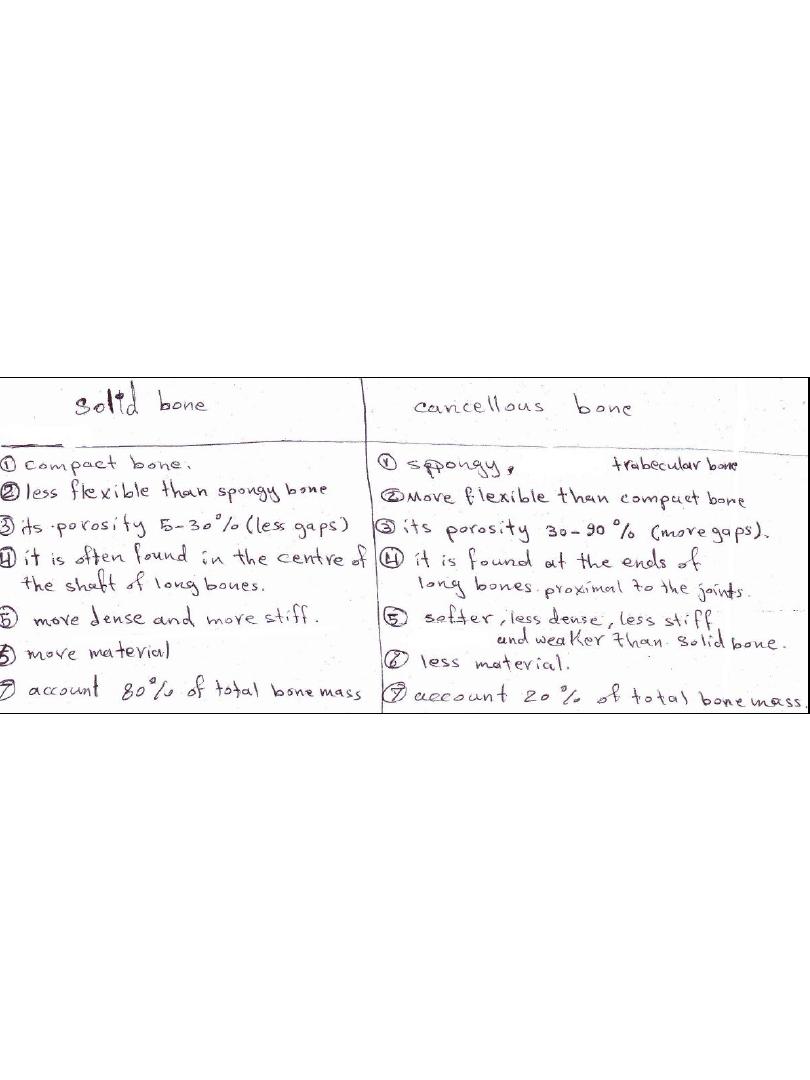 solid bone
① compact bone.
② less flexible than spongy bone
③ its porosity 5-30% (less gaps)
④ it is often found in the centre of
the shaft of long bones.
⑤ more dense and more stiff.
⑤ more material
⑦ account 80% of total bone mass
cancellous bone
① sppongy, trabecular bone
② More flexible than compact bone
③ its porosity 30-90% (more gaps).
④ it is found at the ends of
long bones proximal to the joints.
⑤ softer, less dense, less stiff
and weaker than solid bone.
⑥ less material.
⑦ account 20% of total bone mass.